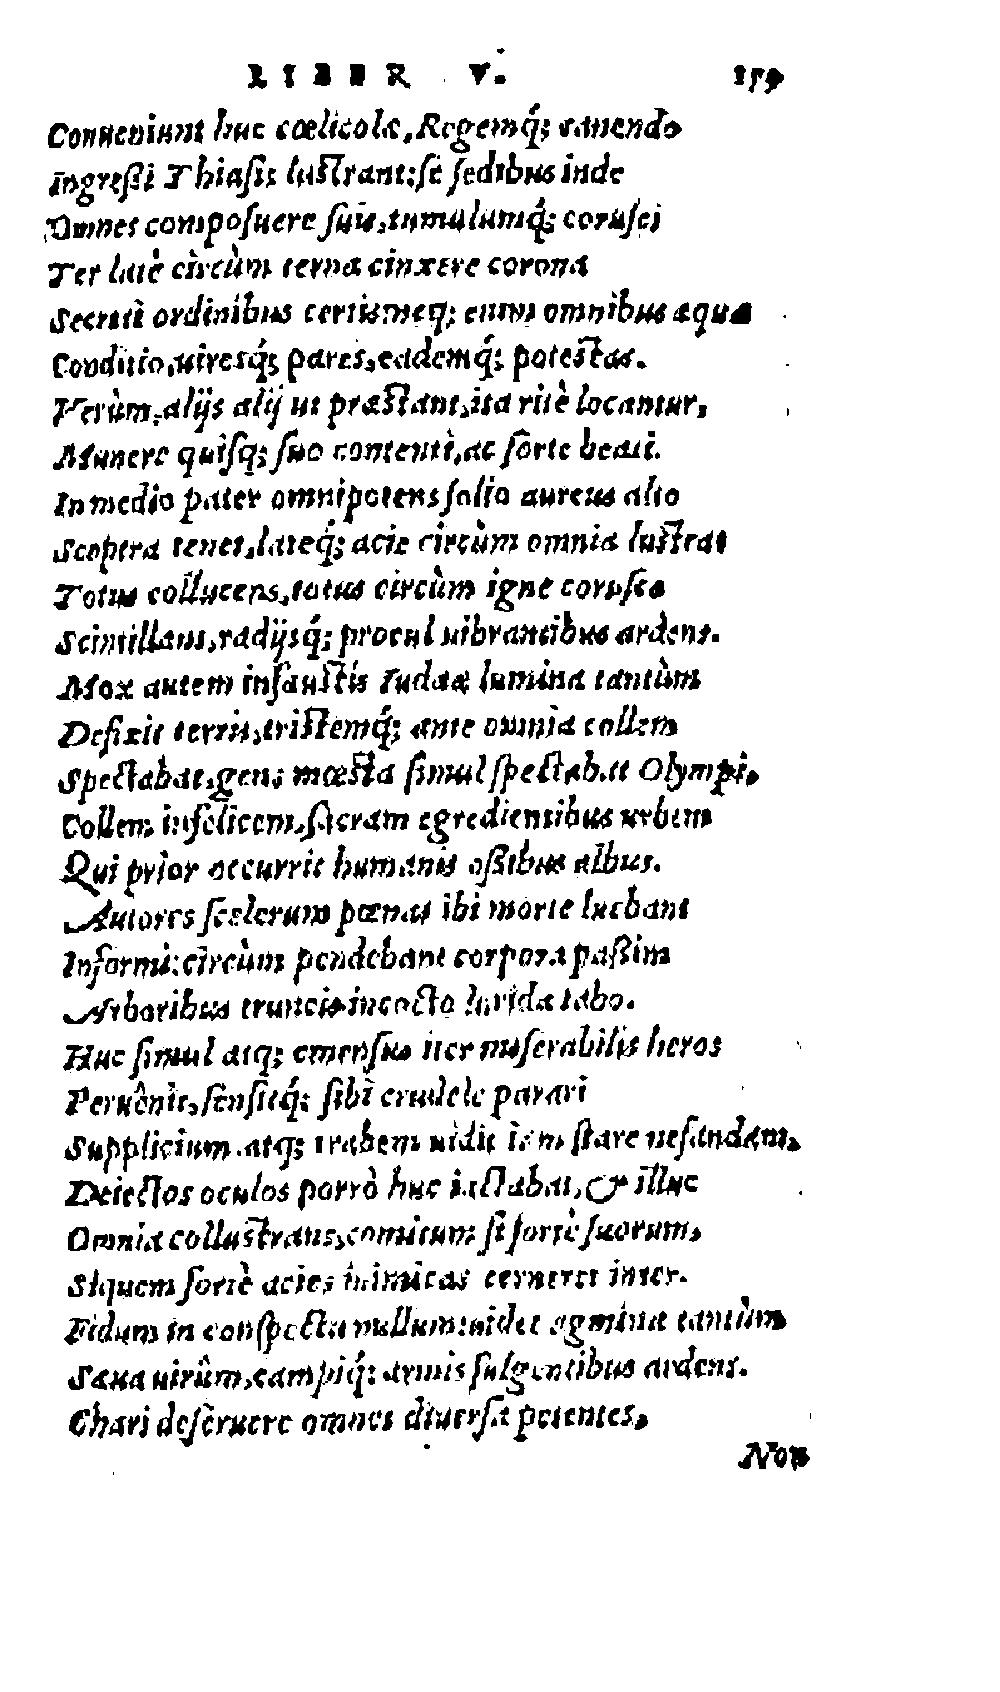 LIBER V. 159
Conueniunt huc cœlicolæ, Regemq́; canendo
Ingreßi Thiasis lustrant: se sedibus inde
Omnes composuere suis, tumulumq́; corusci
Ter latè circùm terna cinxere corona
Secreti ordinibus certis: neq; enim omnibus æqua
Conditio, uiresq́; pares, eademq́; potestas.
Verùm, alijs alij ut præstant, ita ritè locantur,
Munere quisq; suo contenti, ac sorte beati.
In medio pater omnipotens solio aureus alto
Sceptra tenet, lateq́; acie circùm omnia lustrat
Totus collucens, totus circùm igne corusco
Scintillans, radijsq́; procul uibrantibus ardens.
Mox autem infaustis Iudææ lumina tantùm
Defixit terris, tristemq́; ante omnia collem
Spectabat, gens mœsta simul spectabat Olympi,
Collem infelicem, sacram egredientibus urbem
Qui prior occurrit humanis oßibus albus.
Autores scelerum pœnas ibi morte luebant
Informi: circùm pendebant corpora paßim
Arboribus truncis incocto liuida tabo.
Huc simul atq; emensus iter miserabilis heros
Peruênit, sensitq́; sibi crudele parari
Supplicium, atq; trabem uidit iam stare nefandam,
Deiectos oculos porrò huc iactabat, & illuc
Omnia collustrans, comitum si fortè suorum,
Siquem fortè acies inimicas cerneret inter.
Fidum in conspectu nullum: uidet agmina tantùm
Sæua uirûm, campiq́; armis fulgentibus ardent.
Chari deseruere omnes diuersa petentes,
Non